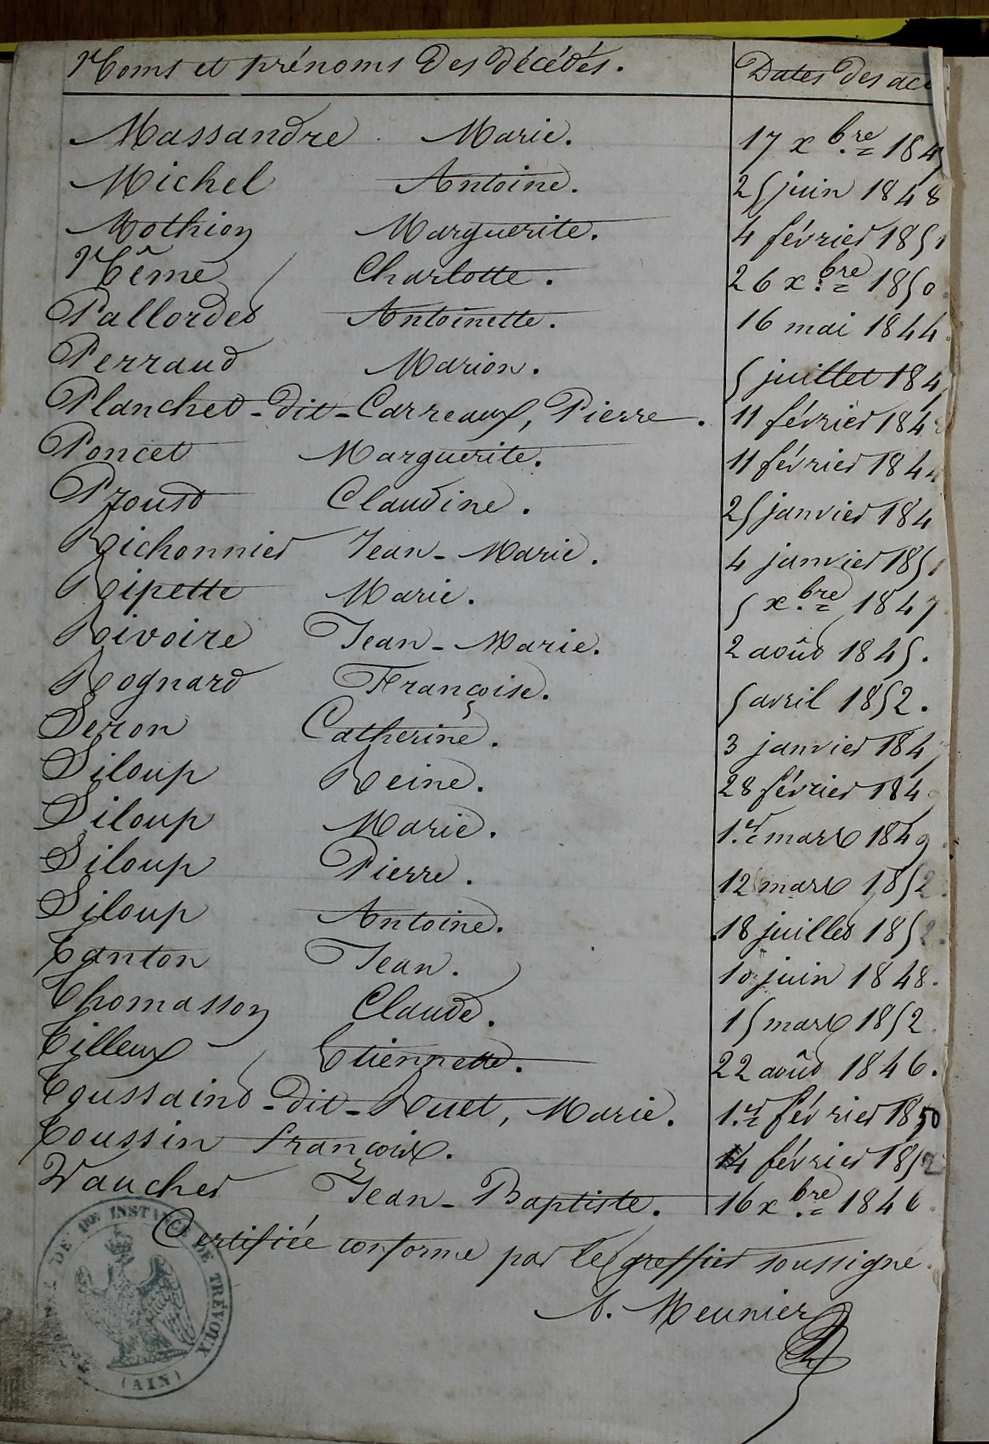 Noms et prénoms des décédés. Dates des ac
Massandre Marie. 17 xbre 184
Michel Antoine. 25 juin 1848
Mothion Marguerite. 4 février 1851
Même Charlotte. 26 xbre 1850
Pallordet Antoinette. 16 mai 1844.
Perraud Marion. 5 juillet 184
Planchet-dit-Carreaux, Pierre. 11 février 184
Poncet Marguerite. 11 février 184
Proust Claudine. 25 janvier 184
Richonnier Jean-Marie. 4 janvier 1851
Ripette Marie. 5 xbre 1847
Rivoire Jean-Marie. 2 août 1845.
Rognard Françoise. 5 avril 1852.
Seron Catherine. 3 janvier 184
Siloup Reine. 28 février 184
Siloup Marie. 1er mars 1849
Siloup Pierre. 12 mars 1852.
Siloup Antoine. 18 juillet 1852.
Tanton Jean. 10 juin 1848.
Thomasson Claude. 15 mars 1852
Tilleux Etiennette. 22 août 1846.
Toussaint-dit-Ruet, Marie. 1er février 1850
Toussin françois. 14 février 1852
Vaucher Jean-Baptiste. 16 xbre 1846.
Certifiée conforme par le greffier soussigné.
A. Meunier
DE 1RE INSTANCE DE TRÉVOUX
(AIN)